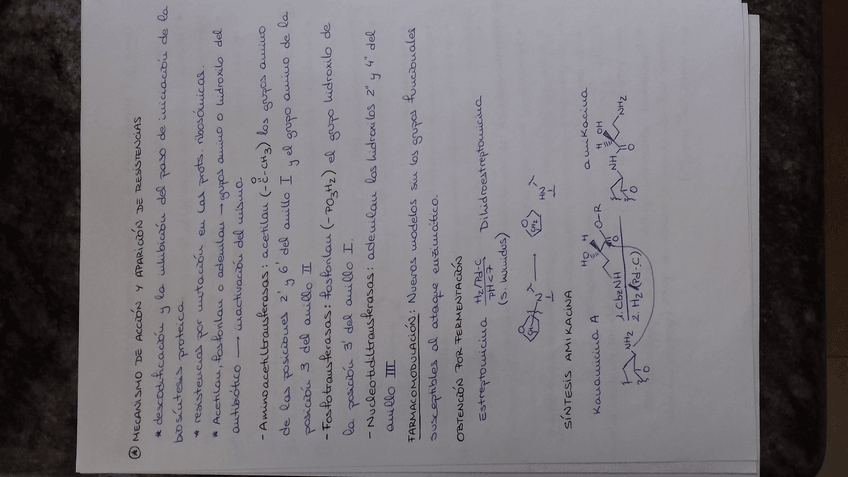 * MECANISMO DE ACCIÓN Y APARICIÓN DE RESISTENCIAS
* descodificación y la inhibición del paso de iniciación de la
biosíntesis proteica.
* resistencias por mutación en las prots. ribosómicas.
* Acetilan, fosforilan o adenilan → grupos amino o hidroxilo del
antibiótico → inactivación del mismo.
- Aminoacetiltransferasas: acetilan (-C-CH3) los grupos amino
O
de las posiciones 2' y 6' del anillo I y el grupo amino de la
posición 3 del anillo II
- Fosfotransferasas: fosforilan (-PO3H2) el grupo hidroxilo de
la posición 3' del anillo I.
- Nucleotidiltransferasas: adenilan los hidroxilos 2" y 4" del
anillo III
FARMACOMODULACIÓN: Nuevos modelos sin los grupos funcionales
susceptibles al ataque enzimático.
OBTENCIÓN POR FERMENTACIÓN
Estreptomicina H2/Pd-C Dihidroestreptomicina
pH<7
(S. humidus)
SÍNTESIS AMIKACINA
Kanamicina A amikacina
HO H
O-R
O
NH2
O
1. CbzNH
2. H2 (Pd-C)
NH
O
H OH
O
NH2